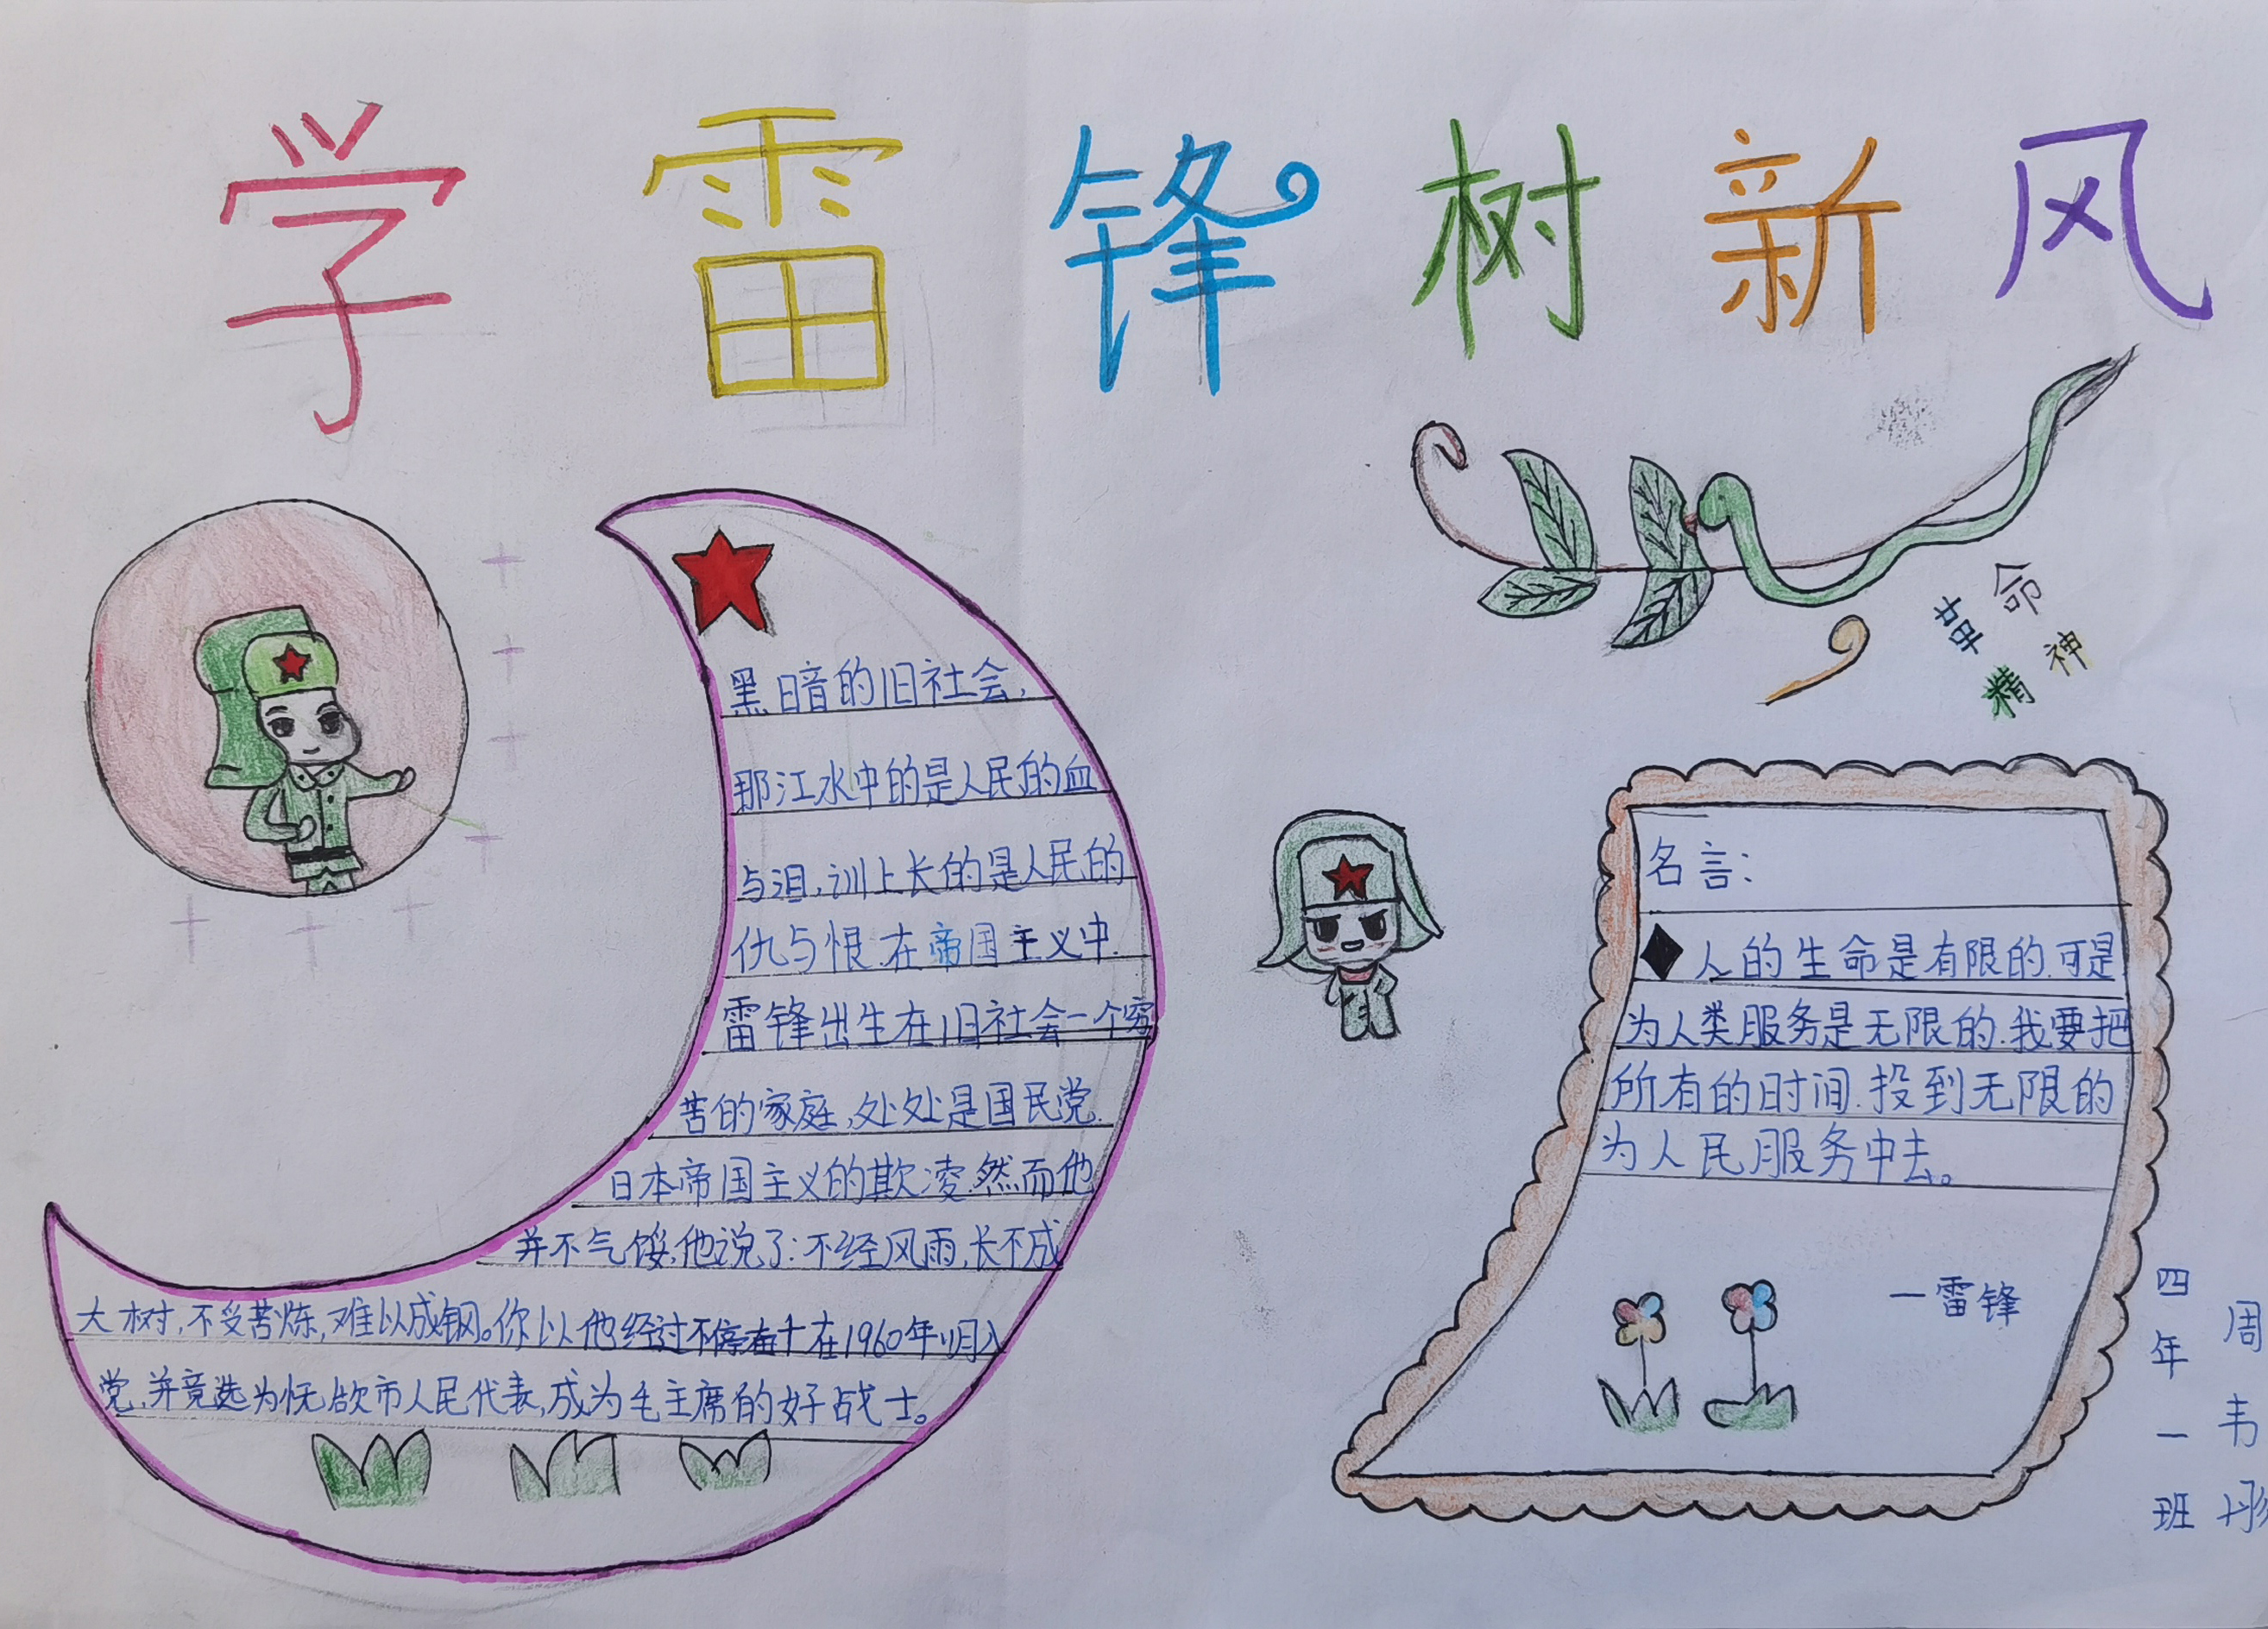 学雷锋树新风
革命
精神
黑暗的旧社会,
那江水中的是人民的血
与泪,训上长的是人民的
仇与恨.在帝国主义中.
雷锋出生在旧社会一个穷
苦的家庭,处处是国民党.
日本帝国主义的欺凌.然而他
并不气馁,他说了:不经风雨,长不成
大树,不受苦炼,难以成钢。你以他经过不停奋十在1960年11月入
党,并竟选为抚欲市人民代表,成为毛主席的好战士。
名言:
◆人的生命是有限的.可是
为人类服务是无限的.我要把
所有的时间.投到无限的
为人民服务中去。
一雷锋
四年一班
周韦彤